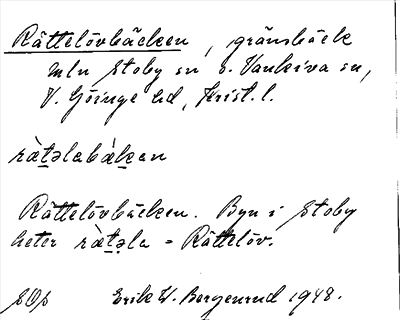 Rättelövbäcken, gränsbäck
mln Stoby sn o. Vankiva sn,
V. Göinge hd, Krist. l.
ràt̲əlabàk̲an
Rättelövbäcken. Byn i Stoby
heter ràt̲əla = Rättelöv.
Erik W. Bergenrud 1948.